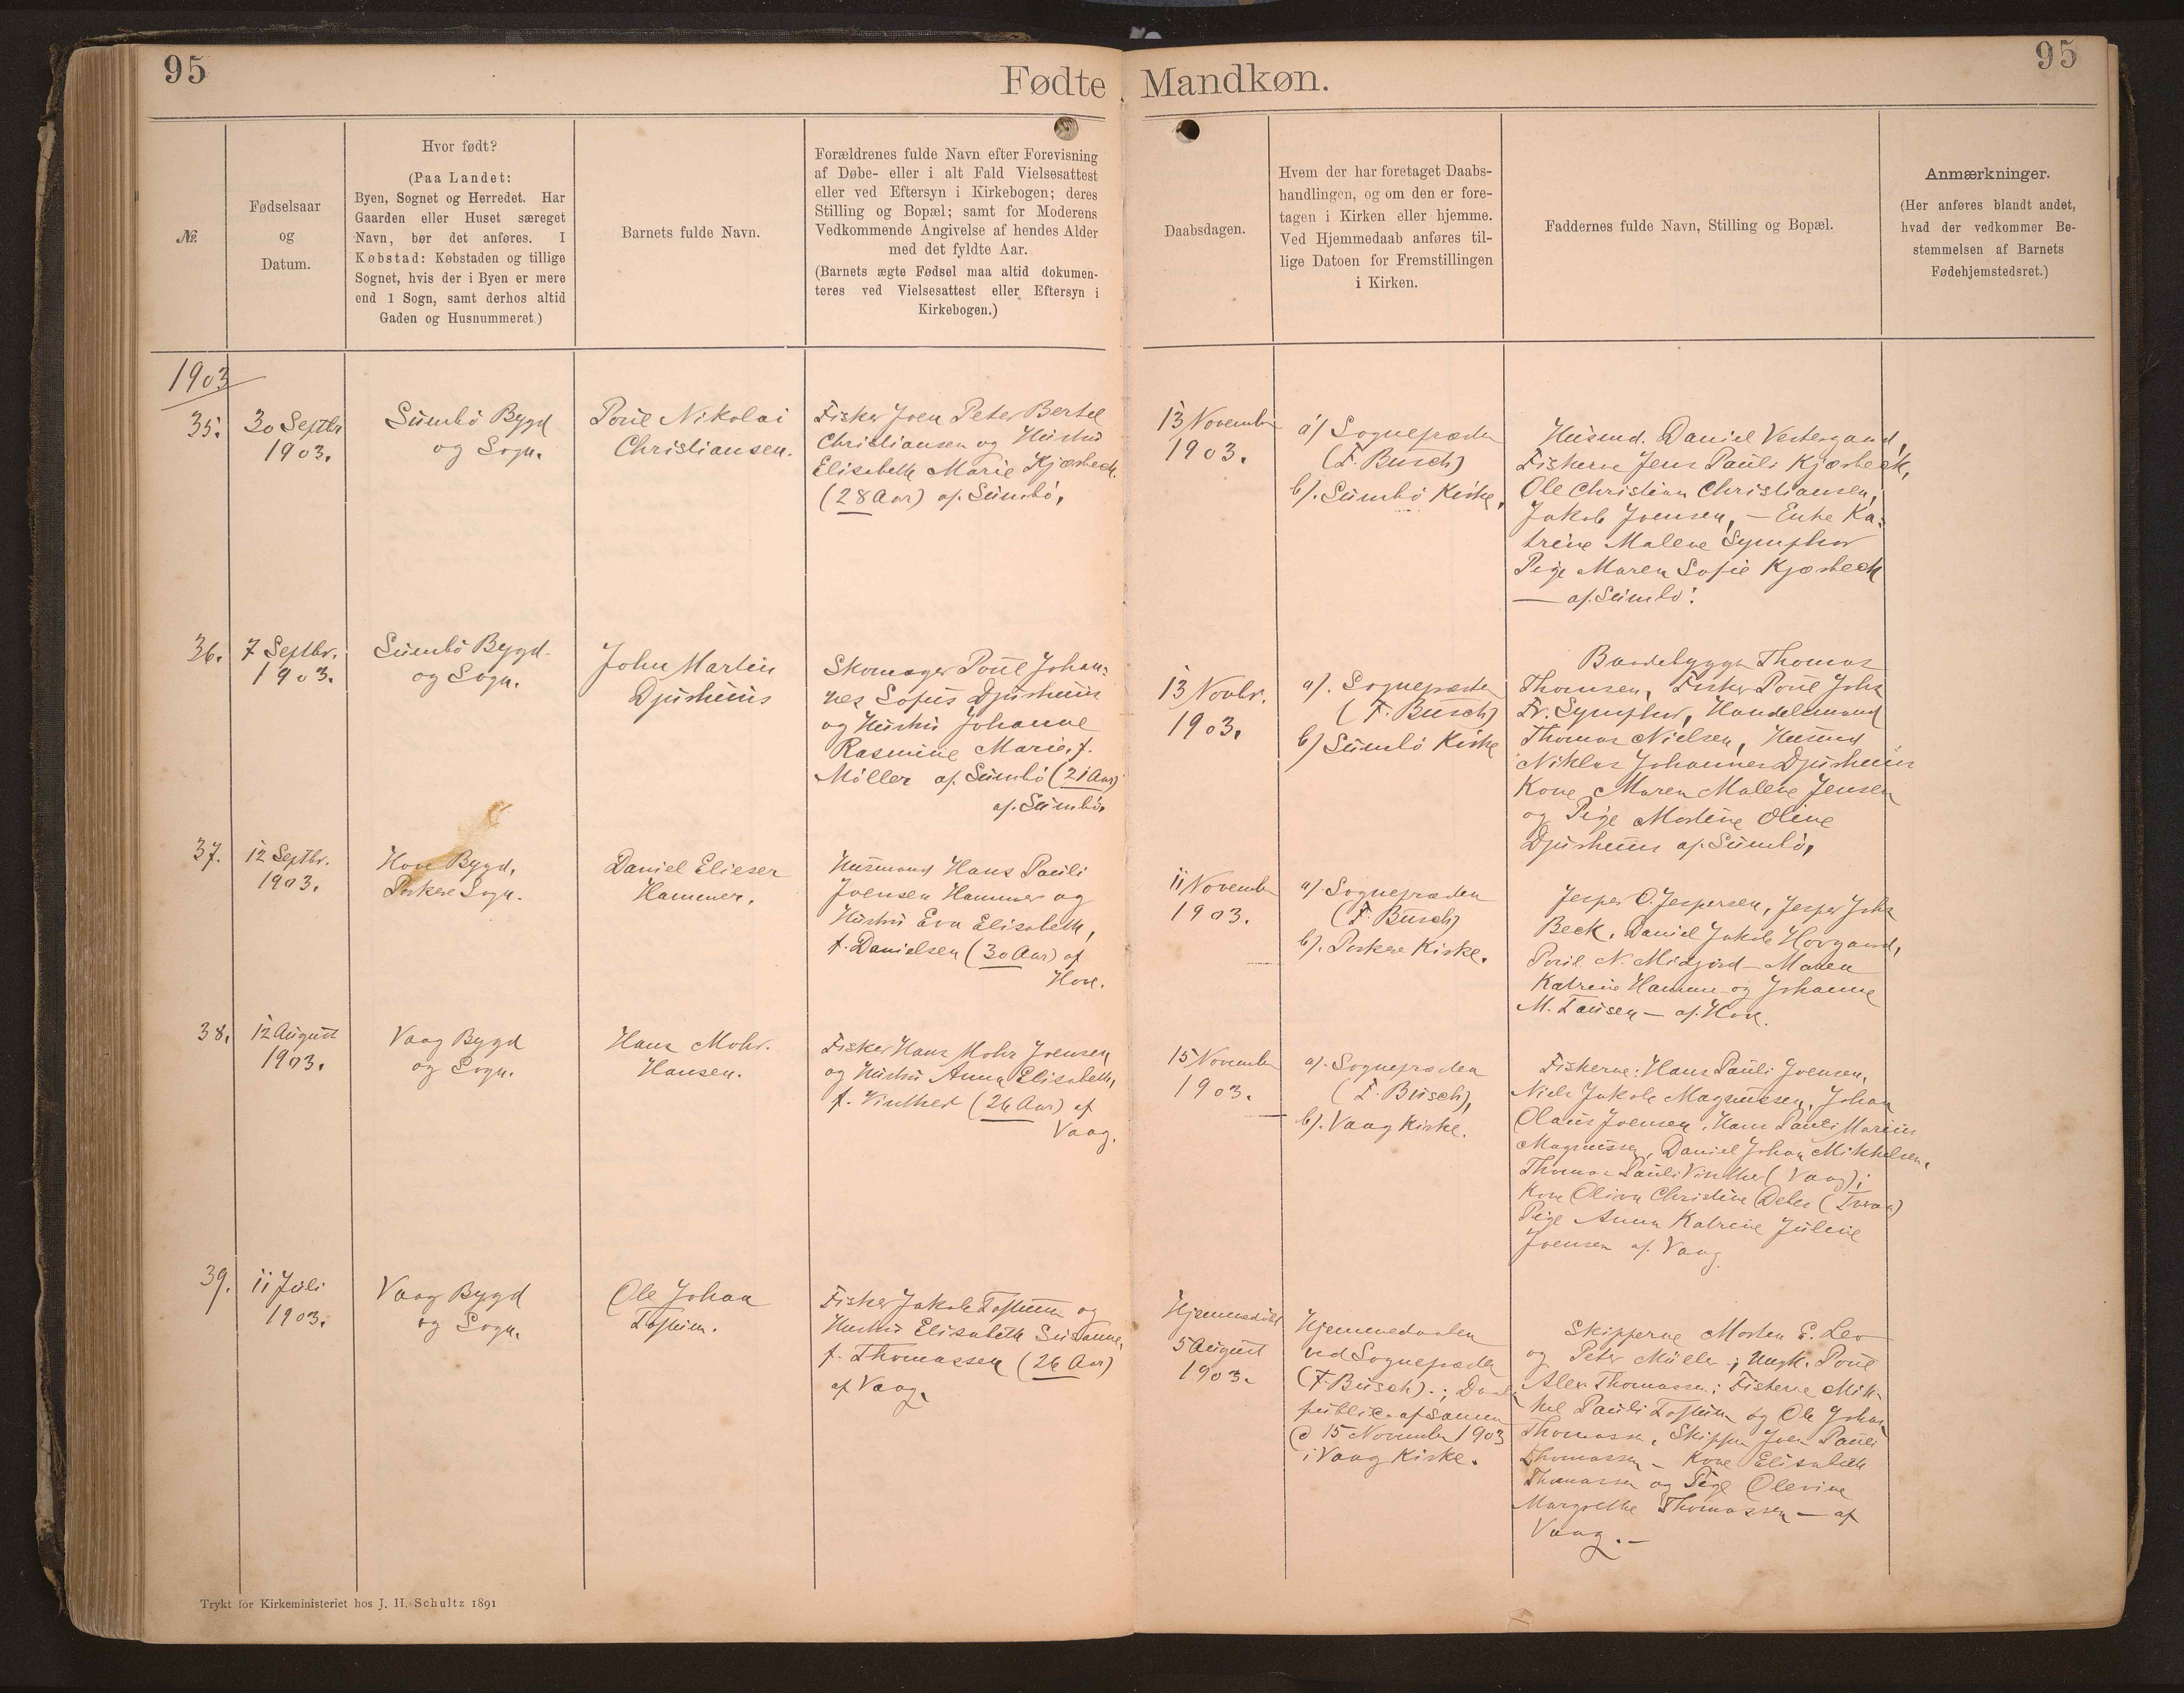 95
Fødte Mandkøn.
95
№.
Fødselsaar
og
Datum.
Hvor født?
(Paa Landet:
Byen, Sognet og Herredet. Har
Gaarden eller Huset særeget
Navn, bør det anføres. I
Købstad: Købstaden og tillige
Sognet, hvis der i Byen er mere
end 1 Sogn, samt derhos altid
Gaden og Husnummeret.)
Barnets fulde Navn.
Forældrenes fulde Navn efter Forevisning
af Døbe- eller i alt Fald Vielsesattest
eller ved Eftersyn i Kirkebogen; deres
Stilling og Bopæl; samt for Moderens
Vedkommende Angivelse af hendes Alder
med det fyldte Aar.
(Barnets ægte Fødsel maa altid dokumen-
teres ved Vielsesattest eller Eftersyn i
Kirkebogen.)
Daabsdagen.
Hvem der har foretaget Daabs-
handlingen, og om den er fore-
tagen i Kirken eller hjemme.
Ved Hjemmedaab anføres til-
lige Datoen for Fremstillingen
i Kirken.
Faddernes fulde Navn, Stilling og Bopæl.
Anmærkninger.
(Her anføres blandt andet,
hvad der vedkommer Be-
stemmelsen af Barnets
Fødehjemstedsret.)
1903
35.
30 Septbr
1903.
Sumbö Bygd
og Sogn.
Poul Nikolai
Christiansen.
Fisker Joen Peter Bertel
Christiansen og Hustru
Elisabeth Marie Kjærbeck
(28 Aar) af Sumbö,
13 November
1903.
a) Sognepræsten
(F. Busch)
b). Sumbö Kirke,
Husmd. Daniel Vestergaard,
Fiskerne Jens Pauli Kjærbeck,
Ole Christian Christiansen,
Jakob Joensen, – Enke Ka-
trine Malene Symphor
Pige Maren Sofie Kjærbeck
— af Sumbö.
36.
7 Septbr.
1903.
Sumbö Bygd
og Sogn.
John Martin
Djurhuus
Skomager Poul Johan-
nes Sofus Djurhuus
og Hustru Johanne
Rasmine Marie, f.
Möller af Sumbö (21 Aar)
af Sumbö.
13 Novbr.
1903.
a). Sognepræsten
(F. Busch)
b) Sumbö Kirke
Baadebygger Thomas
Thomsen, Fisker Poul Johs
Fr. Symphor, Handelsmand
Thomas Nielsen, Husmd
Niklas Johannes Djurhuus
Kone Maren Malene Jensen
og Pige Mortine Oline
Djurhuus af Sumbö,
37.
12 Septbr.
1903.
Hove Bygd,
Porkere Sogn.
Daniel Elieser
Hammer.
Husmand Hans Pauli
Joensen Hammer og
Hustru Eva Elisabeth,
f. Danielsen (30 Aar) af
Hove.
11 November
1903.
a). Sognepræsten
(F. Busch)
b). Porkere Kirke.
Jesper O. Jespersen, Jesper Johs
Beck, Daniel Jakob Hovgaard,
Poul N. Midjord – Maren
Katrine Hammer og Johanne
M. Tausen – af Hove.
38.
12 August
1903.
Vaag Bygd
og Sogn.
Hans Mohr
Hansen.
Fisker Hans Mohr Joensen
og Hustru Anna Elisabeth,
f. Vinther (26 Aar) af
Vaag.
15 November
1903.
a). Sognepræsten
(F. Busch),
b). Vaag Kirke.
Fiskerne: Hans Pauli Joensen,
Niels Jakob Magnussen, Johan
Olaus Joensen, Hans Pauli Marius
Magnussen, Daniel Johan Mikkelsen,
Thomas Pauli Vinther (Vaag);
Kone Olivia Christine (Tveraa)
Pige Anna Katrine Juline
Joensen af Vaag.
39.
11 Juli
1903.
Vaag Bygd
og Sogn.
Ole Johan
Toftum.
Fisker Jakob Toftum og
Hustru Elisabeth Susanne,
f. Thomassen (26 Aar)
af Vaag.
Hjemmedöbt
5 August
1903.
Hjemmedaaben
ved Sognepræsten
(F. Busch).; Daaben
public. af samme
d 15 November 1903
i Vaag Kirke.
Skipperne Morten E. Leo
og Peter Müller; Ungk. Poul
Alex Thomassen; Fiskerne Mik-
kel Pauli Toftum og Ole Johan
Thomassen, Skipper Joen Pauli
Thomassen – Kone Elisabeth
Thomassen og Pige Olevine
Margrethe Thomassen – af
Vaag. –
Trykt for Kirkeministeriet hos J. H. Schultz 1891